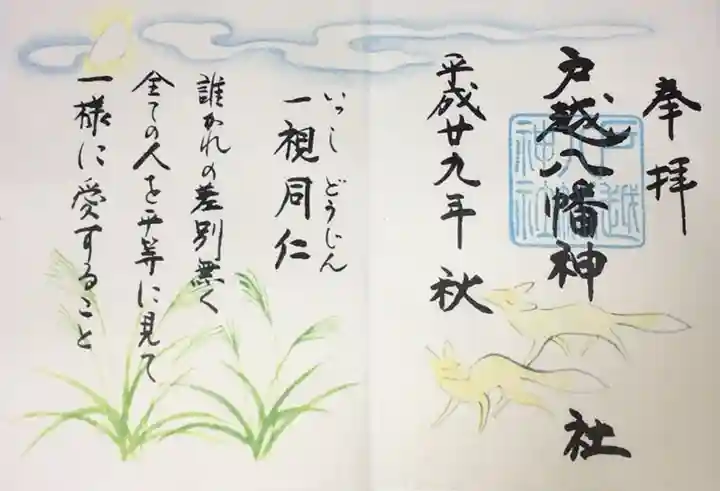 奉拝
戸越八幡神社
戸越
八幡
神社
平成廿九年 秋
いっし どうじん
一視同仁
誰かれの差別無く
全ての人を平等に見て
一様に愛すること